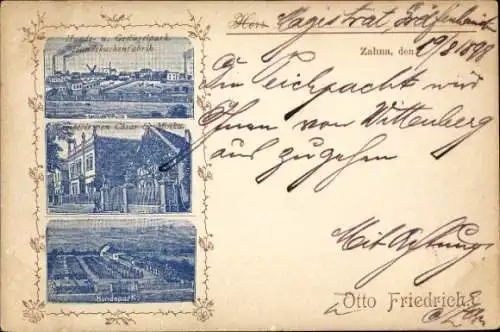 Hunde- u. Geflügelpark
Hundekuchenfabrik
Cäsar & Minka
Hundepark
Herr Magistrat, Gräfenhainichen
Zahna, den 19/8 1898
Die Teichpacht wird
Ihnen von Wittenberg
aus zugehen
Mit Achtung
Otto Friedrich